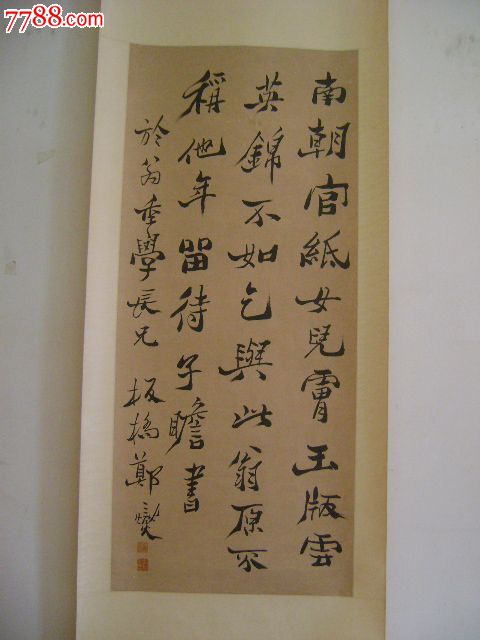 7788.com
南朝官紙女兒膚玉版雲
英錦不如乞與此翁原不
稱他年留待子瞻書
於翁重學長兄 板橋鄭燮